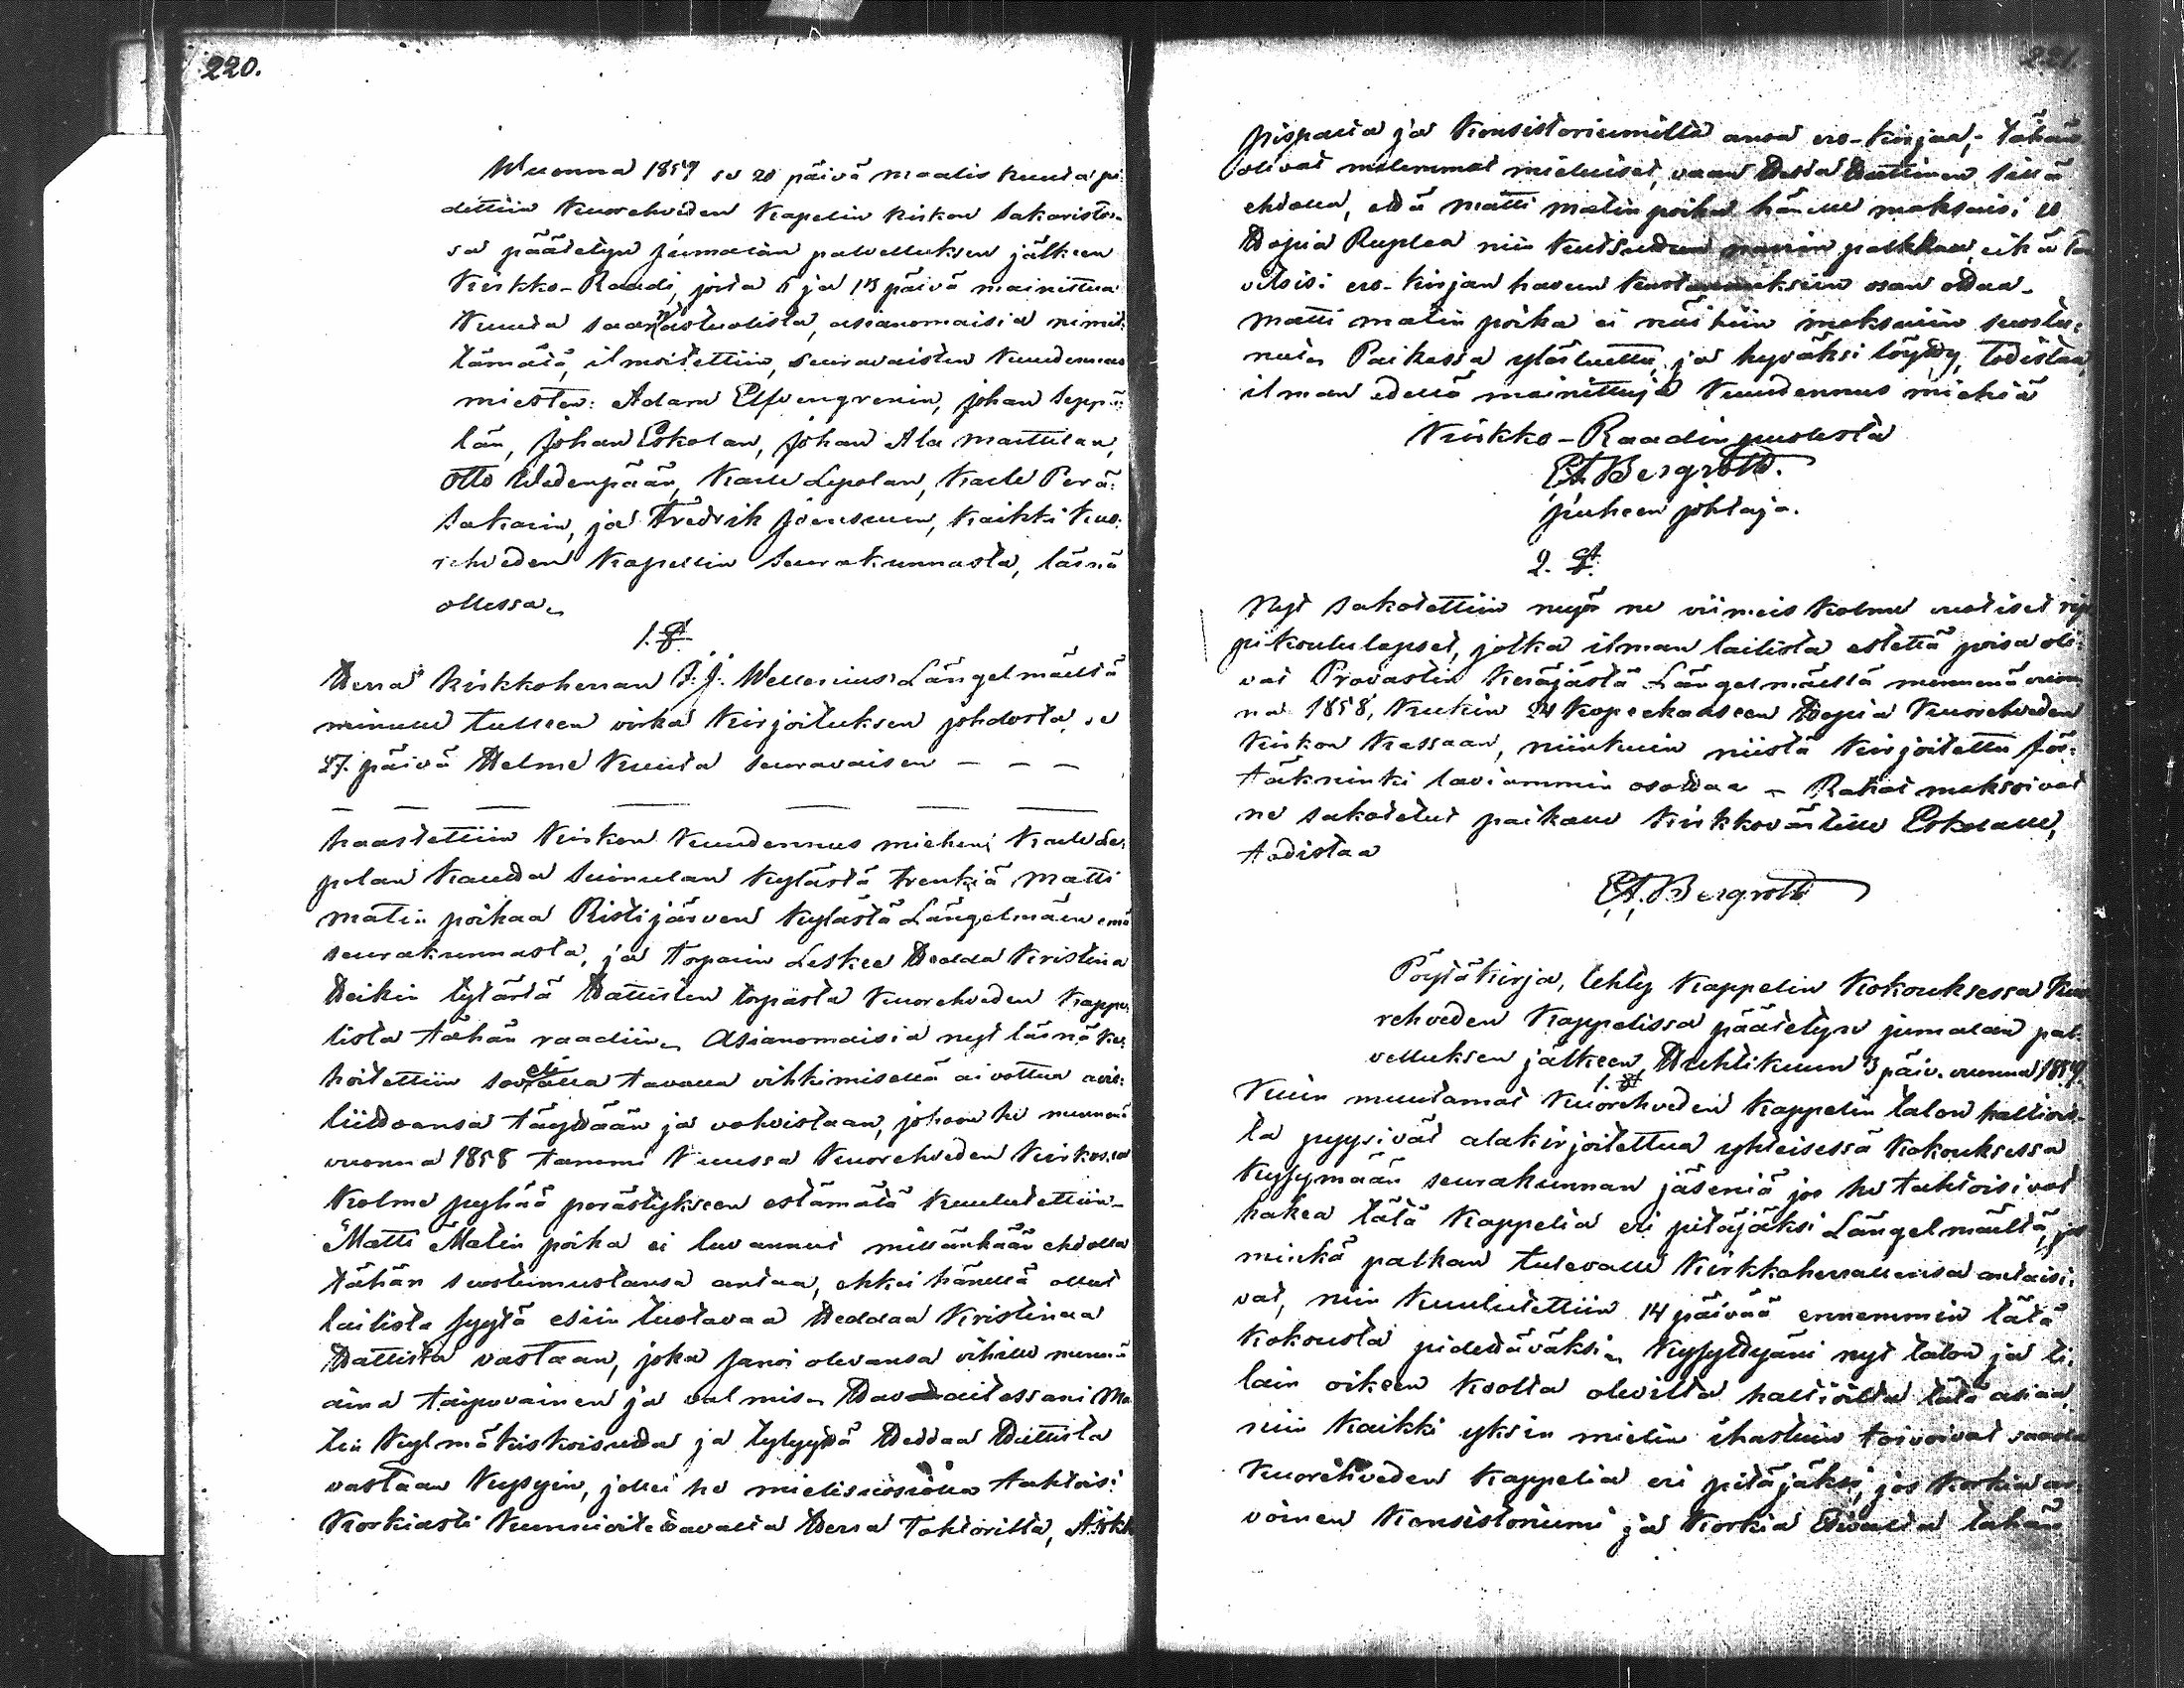 220.
Wuonna 1859 se 20 päivä maalis kuuta pi-
dettiin Kuorehveden Kapelin kirkon Sakaristos-
sa päätetyn jumalan palvelluksen jälkeen
Kirkko-Raadi, joita 6 ja 13 päivä mainittua
Kuuta saarnastuolista, asianomaisia nimit-
tämätä, ilmoitettiin, seuravaisten Kuudennus
miesten: Adam Elfvengrenin, Johan Seppä-
län, Johan Eskolan, Johan Ala Mattilan,
Otto Uedenpään, Kalle Lepolan, Kalle Perä-
Sakarin, ja Fredrik Joensuun, kaikki Kuo-
rehveden Kapellin Seurakunnasta, läsnä
ollessa.
1. §.
Herra Kirkkoherran J. J. Wellenius Längelmäeltä
minulle tulleen virka Kirjoituksen johdosta, se
27. päivä Helme Kuuta seuravaisen — — —
— — — — — — —
haastettiin Kirkon Kuudennus miehen Kalle Le-
polan kautta Suinulan kylästä trenkiä Matti
Matin poikaa Ristijärven kylästä Längelmäen emä
seurakunnasta, ja torparin Leskee Hedda Kristina
Heikin tytärtä Hattisten torpasta Kuorehveden Kappe-
lista tähän raadiin. Asianomaisia nyt läsnä ke-
hoitettiin sovialla tavalla vihkimisellä aivottua avio-
liittoansa täyttään ja vahvistaan, johon he mennenä
vuonna 1858 tammi Kuussa Kuorehveden Kirkossa
Kolme pyhää perästykseen estämätä kuulutettiin.
Matti Matin poika ei luvannut millänkään ehdolla
tähän suostumustansa antaa, ehkei hänellä ollut
laillista syytä esiin tuotavaa Heddaa Kristinaa
Hattista vastaan, joka sanoi olevansa vihille menemä
aina taipuvainen ja valmis. Havaitessani Ma-
tin kylmäkiskoisuutta ja tylyyttä Heddaa Hattista
vastaan kysyin, jollei he mielisuosiolla tahtoisi
Korkiasti Kunnioitettavalta Herra Tohtorilta, Arkki
221.
pispalta ja Konsistoriumilta anoa ero-kirjaa,- tähän
olivat molemmat mieluiset, vaan Hedda Hattinen sillä
ehdolla, että Matti Matin poika hänelle maksaisi 10
Hopia Ruplaa niin kutsuttua naurin palkkaa, eikä tar
vitsisi ero-kirjan haun kustannuksiin osaa ottaa.
Matti Matin poika ei näihin maksuiin suostu-
nut. Paikassa ylösluettu, ja hyväksi löytty, todistaa,
ilman edellä mainittuja Kuudennus miehiä
Kirkko-Raadin puolesta
E.A. Bergroth.
puheen johtaja.
2. §.
Nyt sakotettiin myös ne viimeis kolme vuotiset rip
pikoululapset, jotka ilman laillista estettä poisa oli-
vat Provastin Keräjästä Längelmäellä mennenä vuon
na 1858, kukin 24 kopeekaaseen Hopia Kuorehveden
Kirkon Kassaan, niinkuin niistä kirjoitettu för-
täkninki laviammin osottaa. Rahat maksoivat
ne sakotetut paikalle Kirkkovärtille Eskolalle,
todistaa
E.A. Bergroth
Pöytäkirja, tehty Kappelin Kokouksessa Kuo
rehveden Kappelissa päätetyn jumalan pal-
velluksen jälkeen, Huhtikuun 3 päiv. vuonna 1859.
1. §
Kuin muutamat Kuorehveden Kappelin talon haltiois-
ta pyysivät alakirjoitettua yhteisessä kokouksessa
kysymään seurakunnan jäseniä jos he tahtoisivat
hakea tätä Kappelia eri pitäjäksi Längelmäeltä, ja
minkä palkan tulevalle Kirkkoherrallensa antaisi-
vat, niin kuulutettiin 14 päivää ennemmin tätä
kokousta pidettäväksi. Kysyttyäni nyt talon ja ti-
lain oikeen koolla olevilta haltioilta tätä asiaa,
niin kaikki yksin mielin ihastuin toivoivat saada
Kuorehveden Kappelia eri pitäjäksi, jos Korkia ar-
voinen Konsistoriumi ja Korkia Esivalta tähän